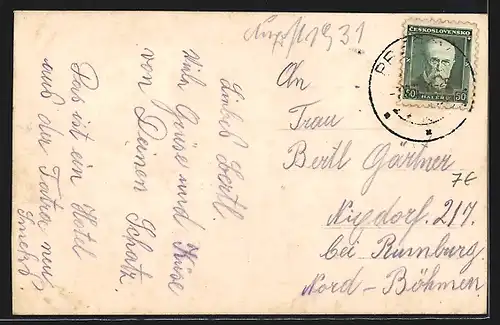 Liebes Bertl.
Viele Grüße und Küsse
von Deinen Schatz.
Das ist ein Hotel
aus der Tatra neu
1931
ČESKOSLOVENSKO
50 HALÉŘŮ 50
An
Frau
Bertl Gärtner
Nixdorf. 217.
bei Rumburg.
Nord-Böhmen
7€